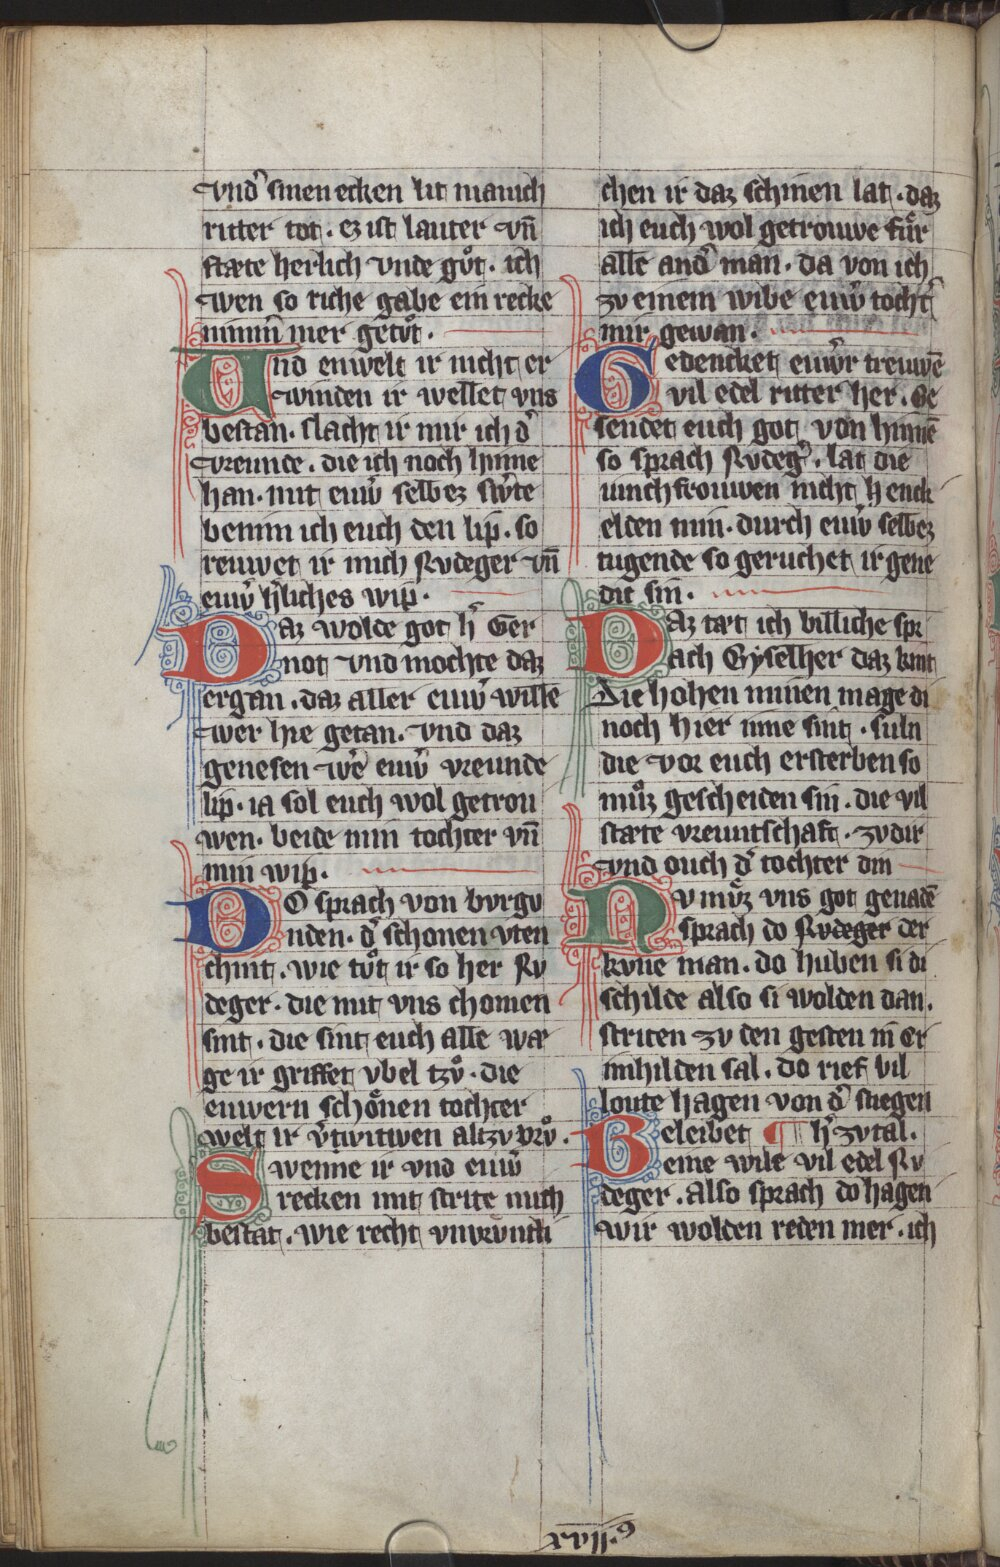 vnd᷎ sinen ecken lit manich
ritter tot · ez ist lauter vn̄
stæte herlich vnde gůt · ich
wen so riche gabe ein recke
nimm̄ mer getůt ·
Vnd enwelt ir nicht er
winden ir wellet vns
bestan · slacht ir mir ich d᷎
vreunde · die ich noch hinne
han · mit euw᷎ selbez sw᷎te
benim ich euch den lip · so
reuwet ir mich Rvdeger vn̄
euw᷎ h᷎liches wip ·
Daz wolde got h᷎ Ger
not vnd mochte daz
ergan · daz aller euw᷎ wille
wer hie getan · vnd daz
genesen we᷎ euw᷎ vreunde
lip · ia sol euch wol getrou
wen · beide min tochter vn̄
min wip ·
DO sprach von bvrgv
nden · d᷎ schonen vten
chint · wie tůt ir so her Rv
deger · die mit vns chomen
sint · die sint euch alle wæ
ge ir griffet vbel tzů · die
euwern schȯnen tochter
welt ir v᷎twitwen altzv vrů ·
Swenne ir vnd euw᷎
recken mit strite mich
bestat · wie recht vnvrvntli
chen ir daz schinen lat · daz
ich euch wol getrouwe fůr
alle and᷎ man · da von ich
zv einem wibe euw᷎ tocht᷎
mir gewan ·
Gedencket euw᷎r treuwē
vil edel ritter her · Ge
sendet euch got von hinnē
so sprach Rvdeg᷎ · lat die
iunchfrouwen nicht h enck
elden min · durch euw᷎ selbez
tugende so geruchet ir gene
dic sin ·
Daz tæt ich billiche spr
ach Gyselher daz kint
Die hohen minen mage di
noch hier inne sint · suln
die vor euch ersterben so
můz gescheiden sin · die vil
stæte vreuntschaft · zv dir
vnd ouch d᷎ tochter din
Nv můz vns got genadē
sprach do Rvdeger der
kvne man · do huben si di
schilde also si wolden dan ·
striten zv den gesten in̄ Cr
imhilden sal · do rief vil
loute hagen von d᷎ stiegen
Beleibet ¶ h᷎ zvtal ·
eine wile vil edel Rv
deger · Also sprach do hagen
wir wolden reden mer · ich
xvii · 9